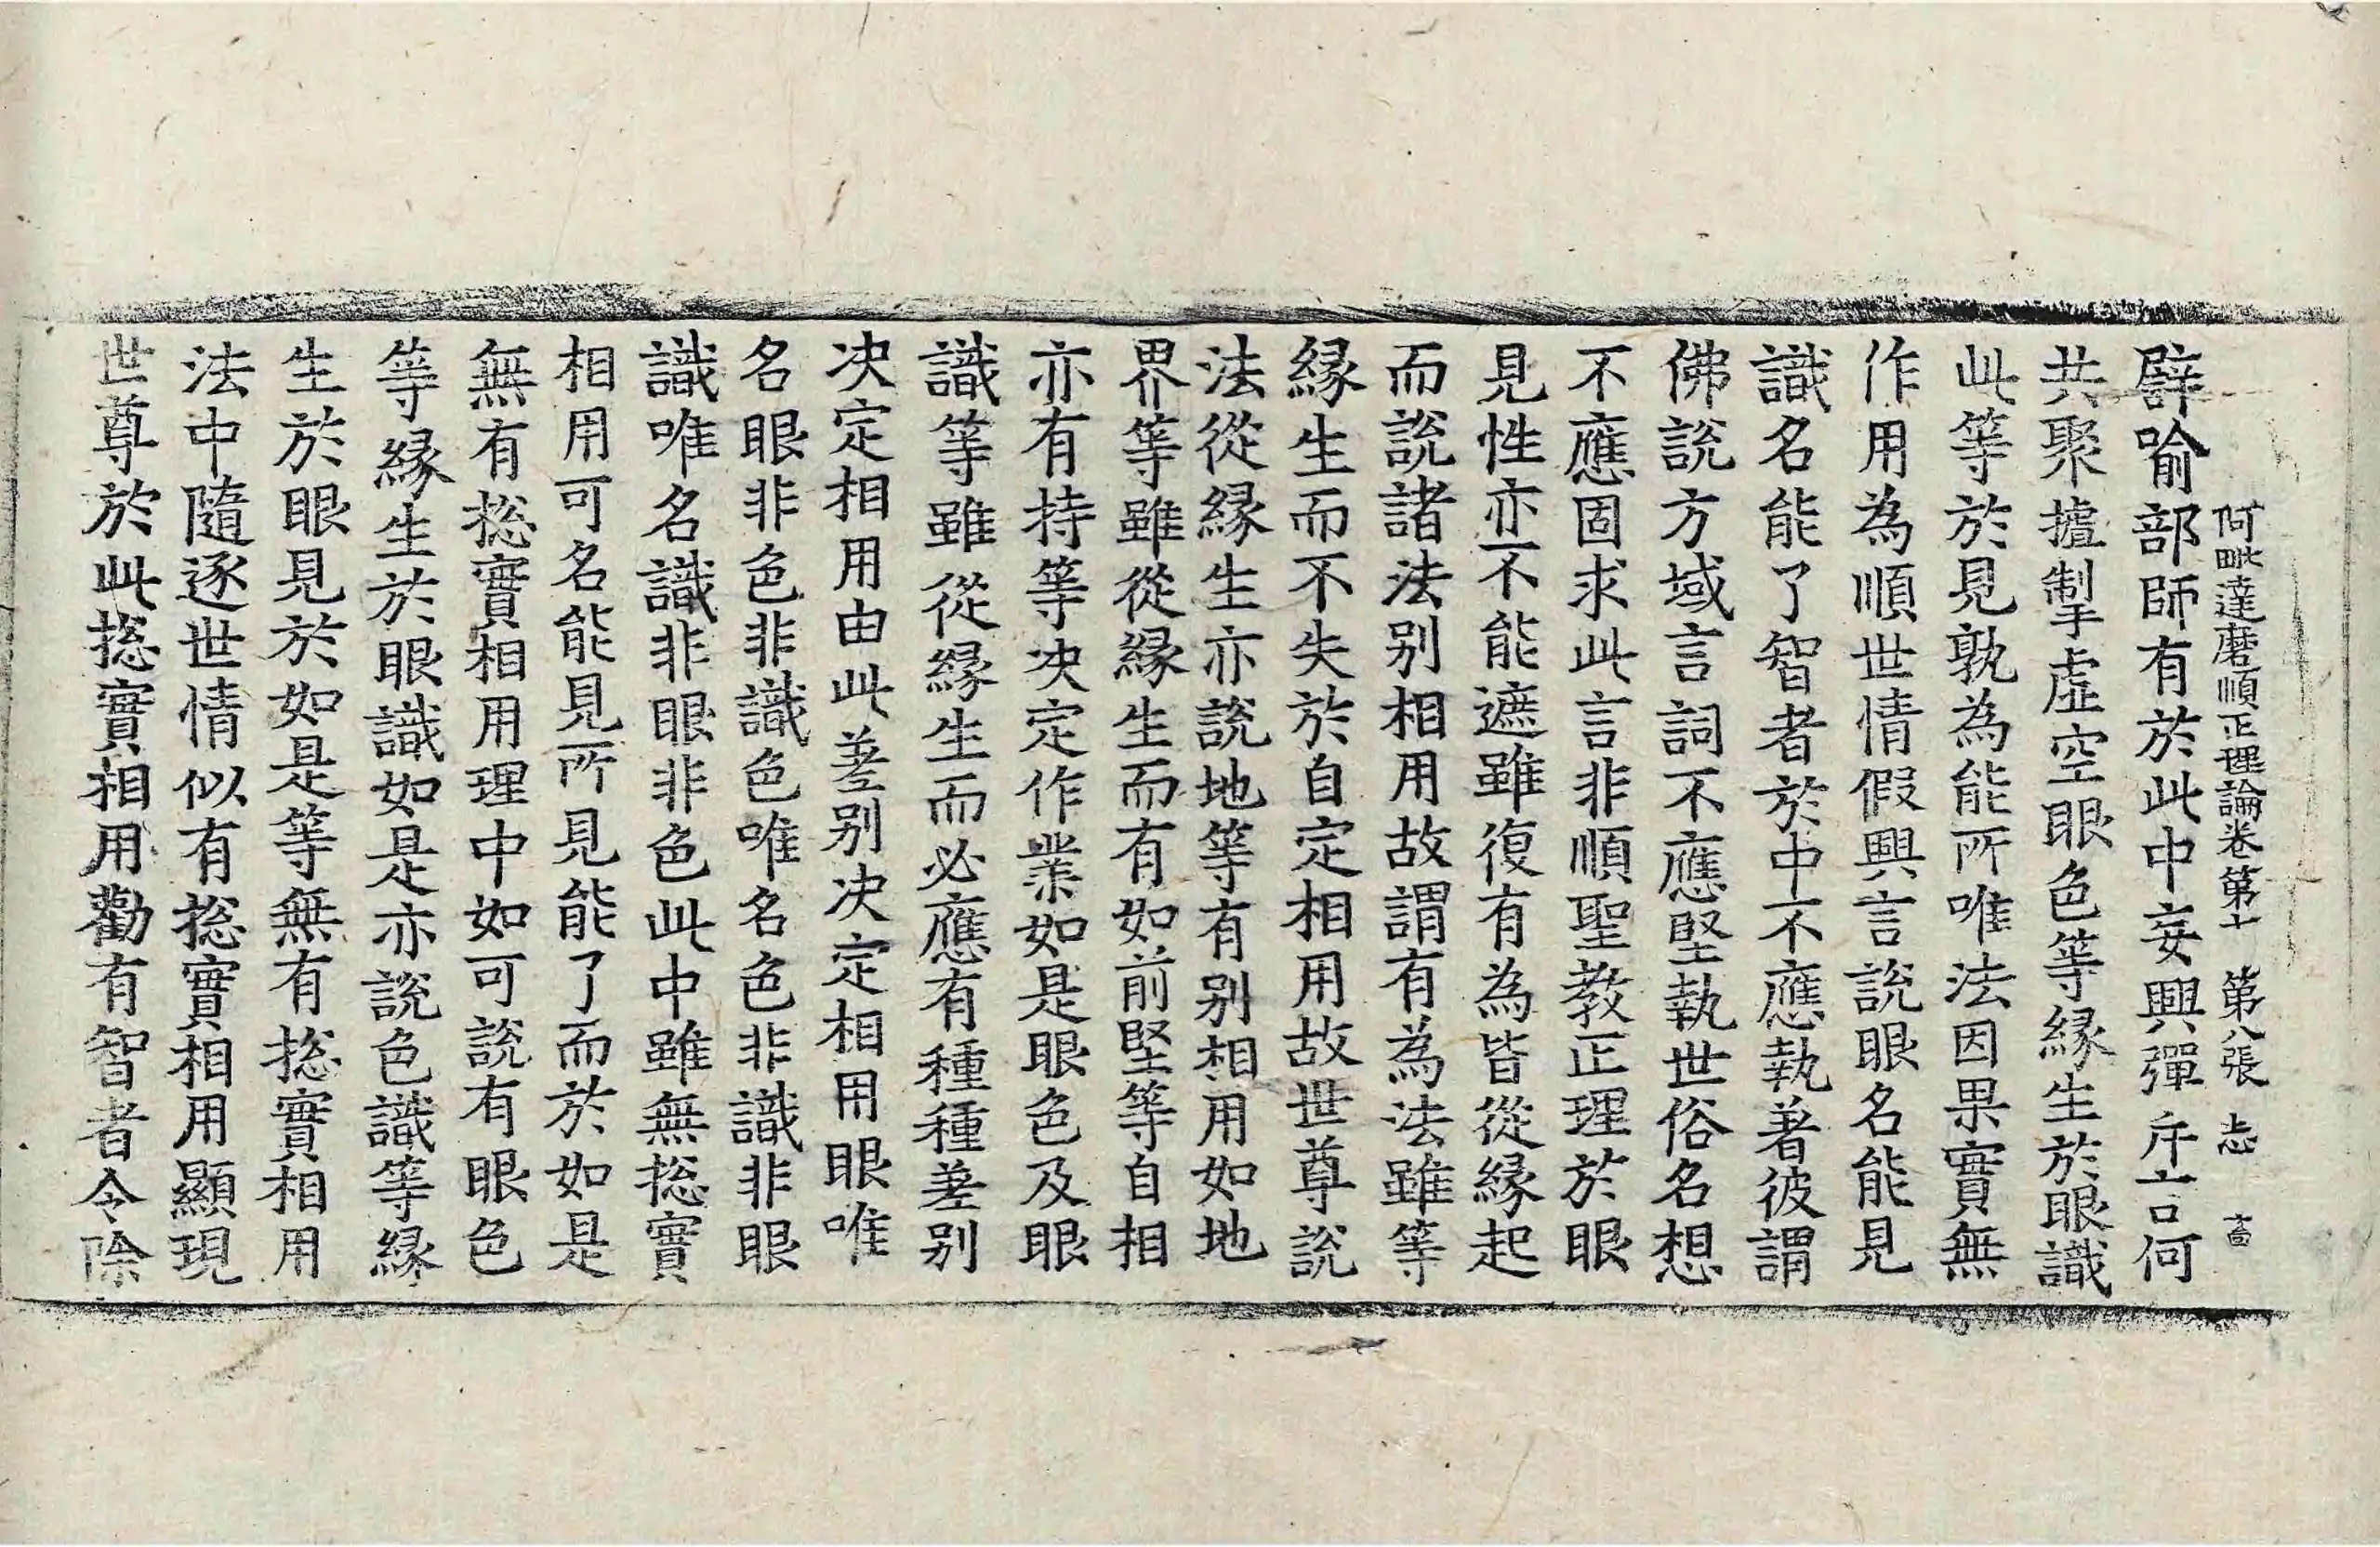 阿毗達磨順正理論卷第七 第八張 志
譬喻部師有於此中妄興彈斥言何
共聚攎掣虛空眼色等緣生於眼識
此等於見孰為能所唯法因果實無
作用為順世情假興言說眼名能見
識名能了智者於中不應執著彼謂
佛說方域言詞不應堅執世俗名想
不應固求此言非順聖教正理於眼
見性亦不能遮雖復有為皆從緣起
而說諸法別相用故謂有為法雖等
緣生而不失於自定相用故世尊說
法從緣生亦說地等有別相用如地
界等雖從緣生而有如前堅等自相
亦有持等決定作業如是眼色及眼
識等雖從緣生而必應有種種差別
決定相用由此差別決定相用眼唯
名眼非色非識色唯名色非識非眼
識唯名識非眼非色此中雖無捴實
相用可名能見所見能了而於如是
無有捴實相用理中如可說有眼色
等緣生於眼識如是亦說色識等緣
生於眼見於如是等無有捴實相用
法中隨逐世情似有捴實相用顯現
世尊於此捴實相用勸有智者令除